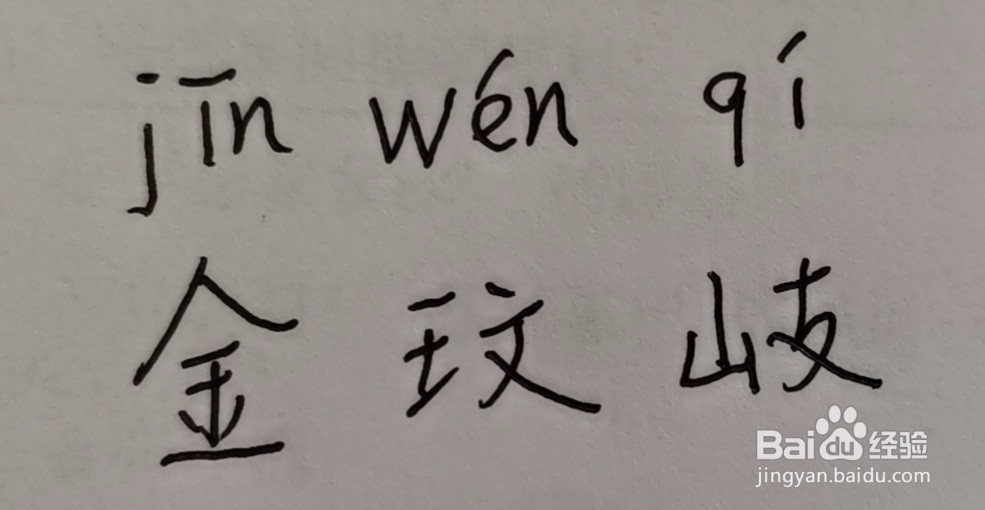 jīn wén qí
金 玟 岐
Baidu 经验
jingyan.baidu.com